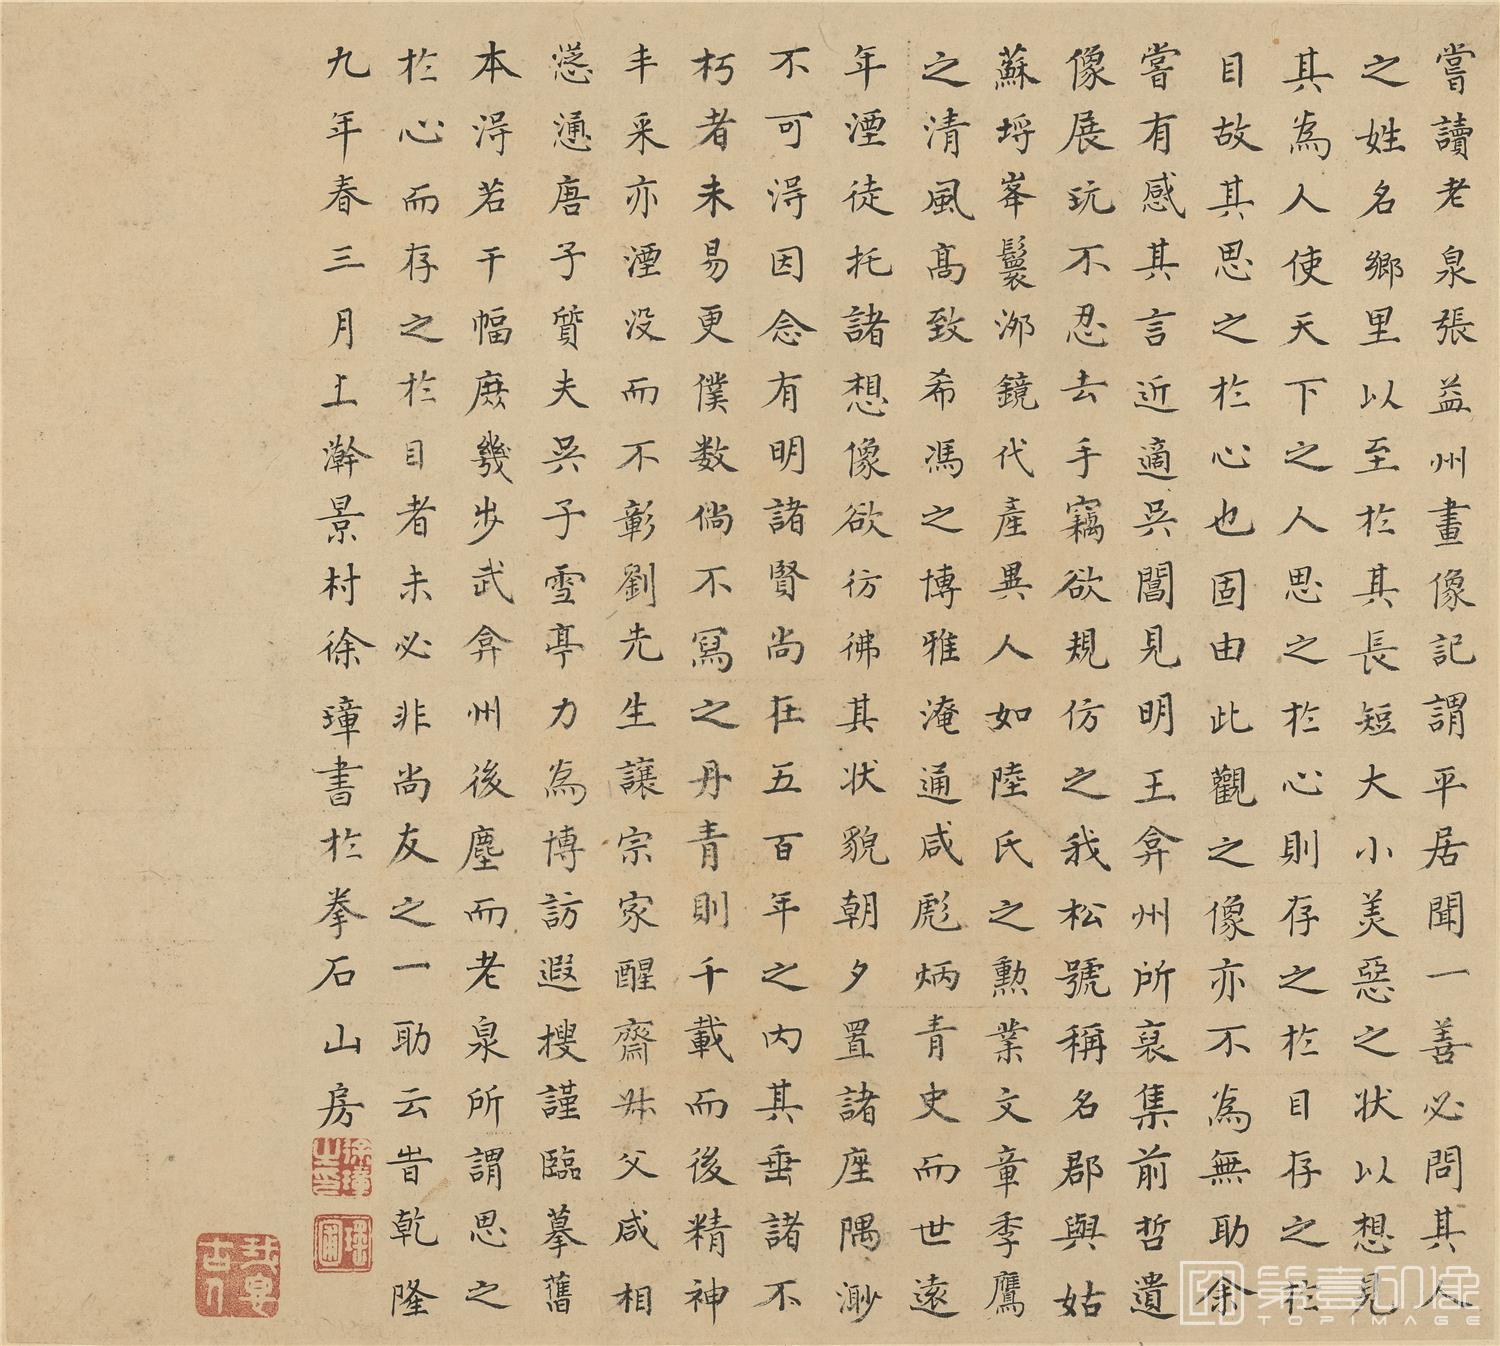 嘗讀老泉張益州畫像記謂平居聞一善必問其人
之姓名鄉里以至於其長短大小美惡之狀以想見
其為人使天下之人思之於心則存之於目存之於
目故其思之於心也固由此觀之像亦不為無助余
嘗有感其言近適吳閶見明王弇州所裒集前哲遺
像展玩不忍去手竊欲規仿之我松號稱名郡與姑
蘇埒峯鬟泖鏡代產異人如陸氏之勲業文章季鷹
之清風高致希馮之博雅淹通咸彪炳青史而世遠
年湮徒托諸想像欲彷彿其狀貌朝夕置諸座隅渺
不可得因念有明諸賢尚在五百年之內其垂諸不
朽者未易更僕數倘不寫之丹青則千載而後精神
丰采亦湮没而不彰劉先生讓宗家醒齋父咸相
慫慂唐子質夫吳子雪亭力為博訪遐搜謹臨摹舊
本得若干幅庶幾步武弇州後塵而老泉所謂思之
於心而存之於目者未必非尚友之一助云旹乾隆
九年春三月上澣景村徐璋書於拳石山房
徐璋之印
瑤圃
我宴古人
第壹印像
TOPIMAGE